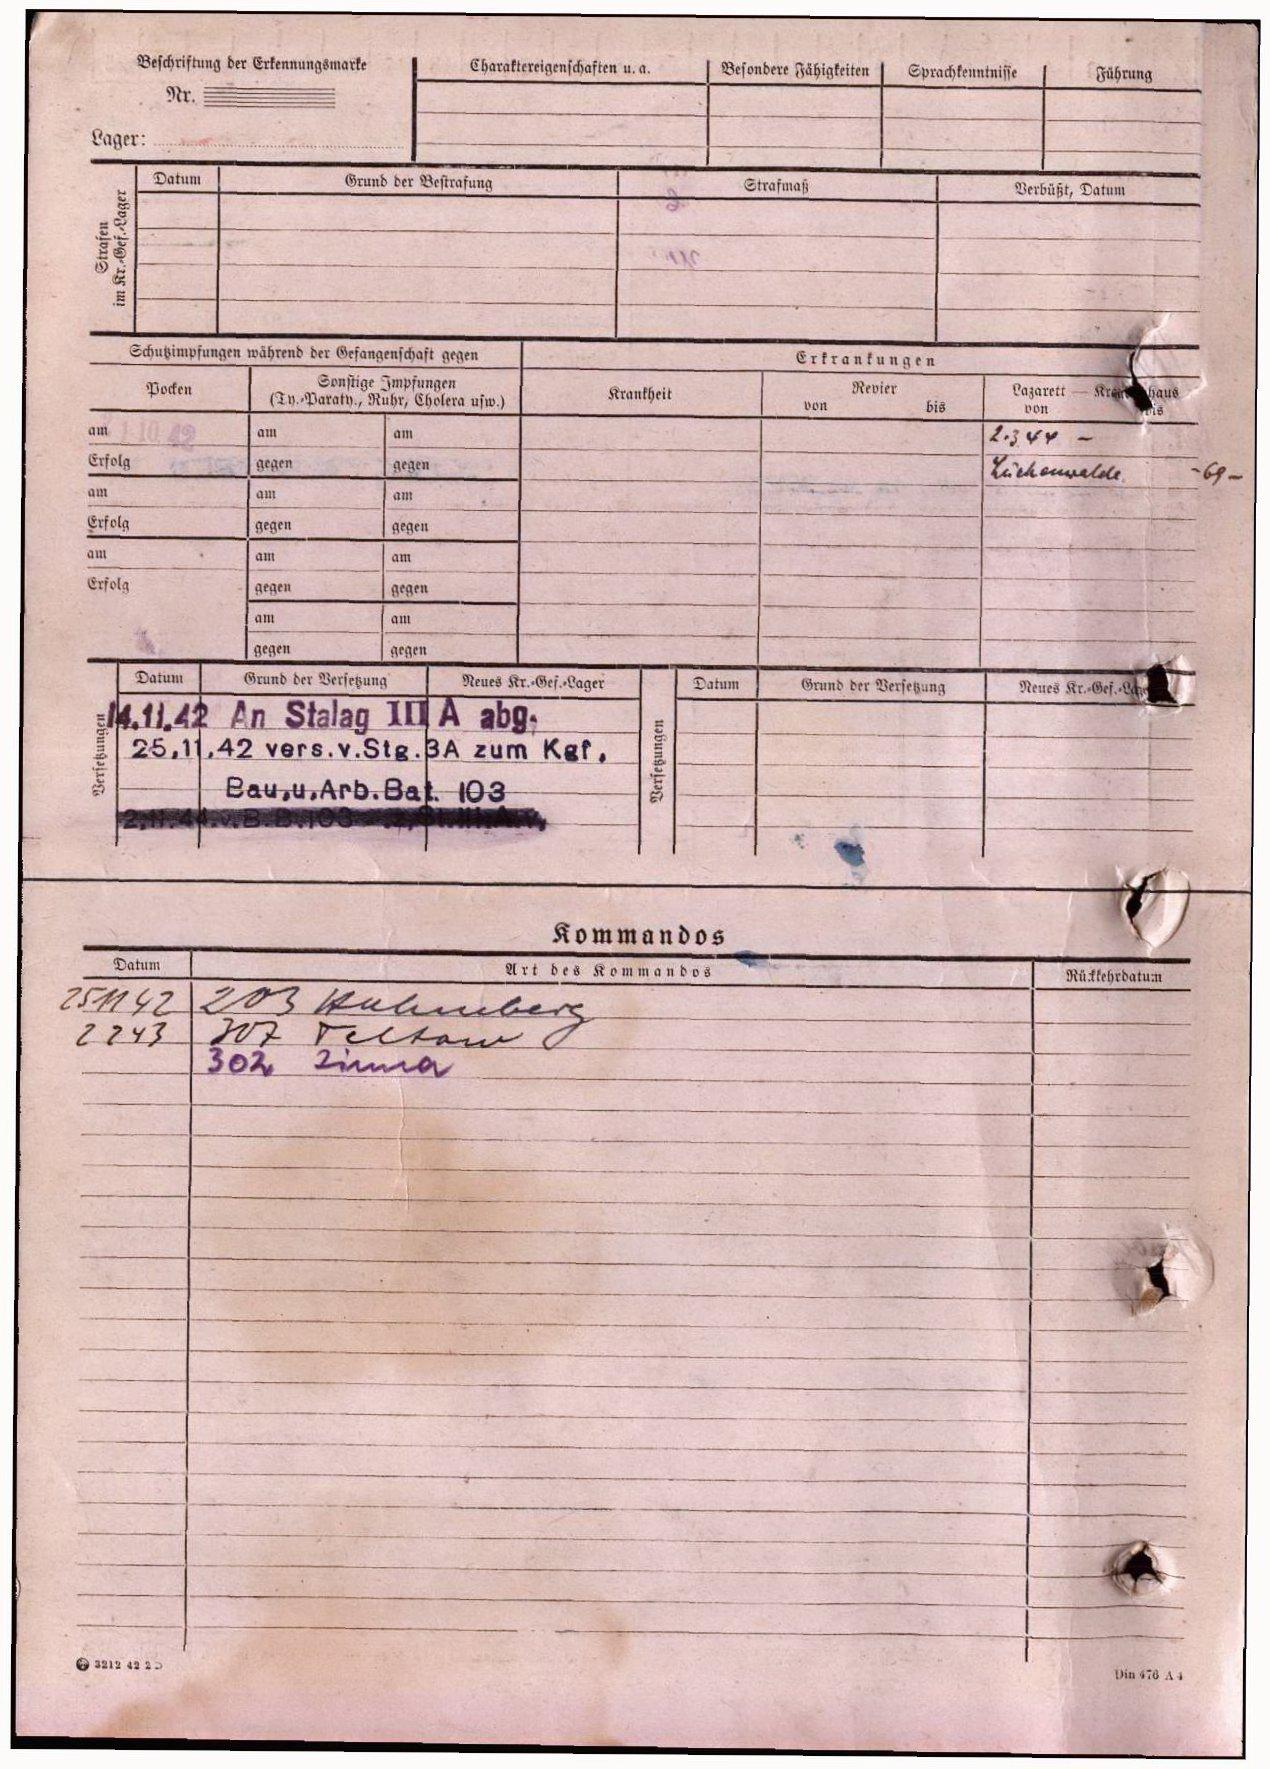 Beschriftung der Erkennungsmarke
Nr.
Lager:
Charaktereigenschaften u. a.
Besondere Fähigkeiten
Sprachkenntnisse
Führung
Strafen
im Kr.-Gef.-Lager
Datum
Grund der Bestrafung
Strafmaß
Verbüßt, Datum
Schutzimpfungen während der Gefangenschaft gegen
Erkrankungen
Pocken
Sonstige Impfungen
(Ty.-Paraty., Ruhr, Cholera usw.)
Krankheit
Revier
von bis
Lazarett — Krankenhaus
von bis
am 1.10.42 am am
2.3 44 –
Erfolg gegen gegen
Luckenwalde. - 69 -
am am am
Erfolg gegen gegen
am am am
Erfolg gegen gegen
am am
gegen gegen
Versetzungen
Datum Grund der Versetzung Neues Kr.-Gef.-Lager
14.11.42 An Stalag III A abg.
25.11.42 vers.v.Stg.3A zum Kgf.
Bau.u.Arb.Bat. 103
2.11.44.v.B.B.103 St.III.A.v.
Versetzungen
Datum Grund der Versetzung Neues Kr.-Gef.-Lager
Kommandos
Datum Art des Kommandos Rückkehrdatum
25 11 42 203
2 2 43 307 Teltow
302 Zinna
3212 42 2 D
Din 476 A 4